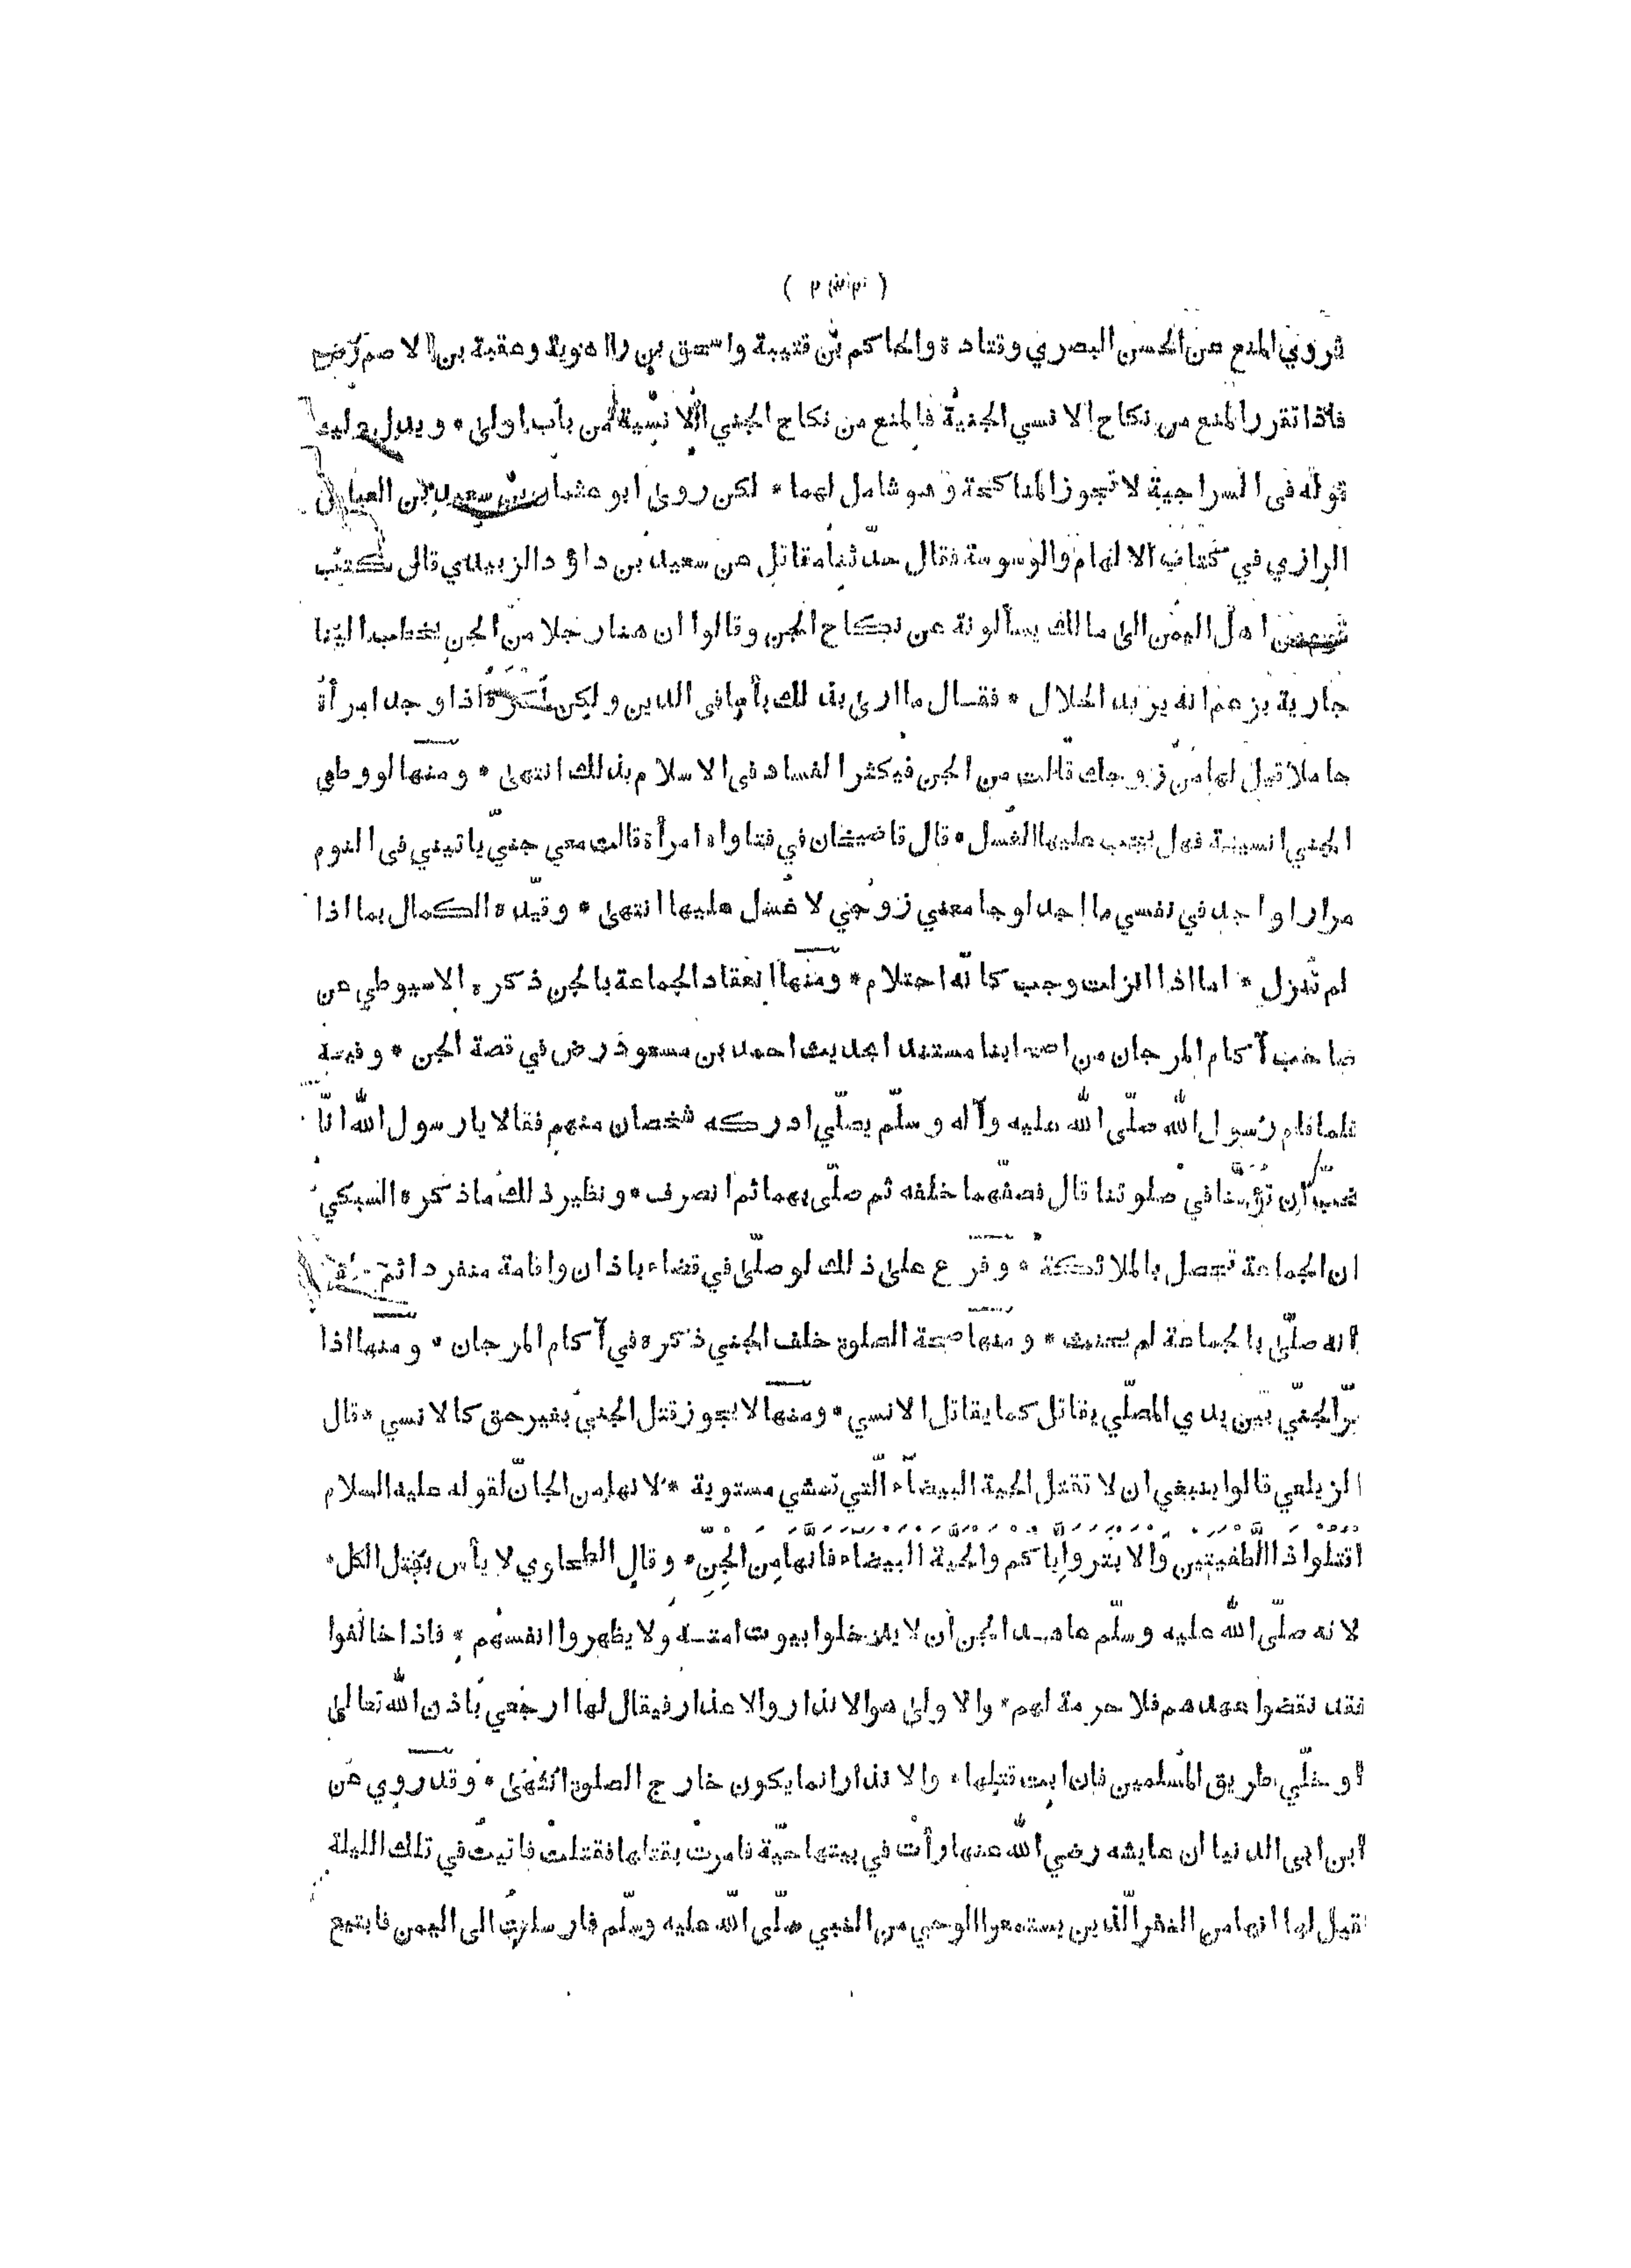 وروي المنع عن الحسن البصري وقتادة والحاكم بن قتيبة واسحق بن راهوية وعقبة بن الاصم رض
فاذا تقرر المنع من نكاح الانسي الجنية فالمنع من نكاح الجني الانسية من باب اولى * ويدل عليه
قوله فى السراجية لا تجوز المناكحة وهو شامل لهما * لكن روى ابو عثمان بن سعيد بن العباس
الرازي في كتاب الالهام والوسوسة فقال حدّثنا مقاتل عن سعيد بن داؤد الزبيدي قال كتب
اهل اليمن الى مالك يسألونه عن نكاح الجن وقالوا ان هنا رجلا من الجن يخطب الينا
جارية يزعم انه يريد الحلال * فقال ما ارى بذلك بأسا فى الدين ولكن اكره اذا وجد امرأة
حاملا قيل لها من زوجك قالت من الجن فيكثر الفساد فى الاسلام بذلك انتهى * ومنها لو وطي
الجني انسية فهل يجب عليها الغسل * قال قاضيخان في فتاواه امرأة قالت معي جنيّ ياتيني فى النوم
مرارا واجد في نفسي ما اجد لو جامعني زوجي لا غسل عليها انتهى * وقيّده الكمال بما اذا
لم تنزل * اما اذا انزلت وجب كانّه احتلام * ومنها انعقاد الجماعة بالجن ذكره الاسيوطي عن
صاحب آكام المرجان من اصحابنا مستندا بحديث احمد بن مسعود رض في قصة الجن * وفيه
فلما قام رسول الله صلّى الله عليه وآله وسلّم يصلّي ادركه شخصان منهم فقالا يا رسول الله انّا
نحبّ ان تؤمّنا في صلوتنا قال فصفّهما خلفه ثم صلّى بهما ثم انصرف * ونظير ذلك ما ذكره السبكي
ان الجماعة تحصل بالملائكة * وفرع على ذلك لو صلّى في فضاء باذان واقامة منفردا ثم
انه صلّى بالجماعة لم يحنث * ومنها صحة الصلوة خلف الجني ذكره في آكام المرجان * ومنها اذا
مرّ الجنيّ بين يدي المصلّي يقاتل كما يقاتل الانسي * ومنها لا يجوز قتل الجني بغير حق كالانسي * قال
الزيلعي قالوا ينبغي ان لا تقتل الحية البيضآء الّتي تمشي مستوية * لانها من الجانّ لقوله عليه السلام
اقتلوا ذا الطّفيتين والابتر واياكم والحية البيضاء فانها من الجنّ * وقال الطحاوي لا بأس بقتل الكل *
لانه صلّى الله عليه وسلّم عاهد الجن ان لا يدخلوا بيوت امته ولا يظهروا انفسهم * فاذا خالفوا
فقد نقضوا عهدهم فلا حرمة لهم * والاولى هو الانذار والاعذار فيقال لها ارجعي باذن الله تعالى
او خلّي طريق المسلمين فان ابت قتلها * والانذار انما يكون خارج الصلوة انتهى * وقد روي عن
ابن ابى الدنيا ان عايشه رضي الله عنها رأت في بيتها حيّة فامرت بقتلها فقتلت فاتيت في تلك الليلة
فقيل لها انها من النفر الّذين يستمعوا الوحي من النبي صلّى الله عليه وسلّم فارسلت الى اليمن فابتيع